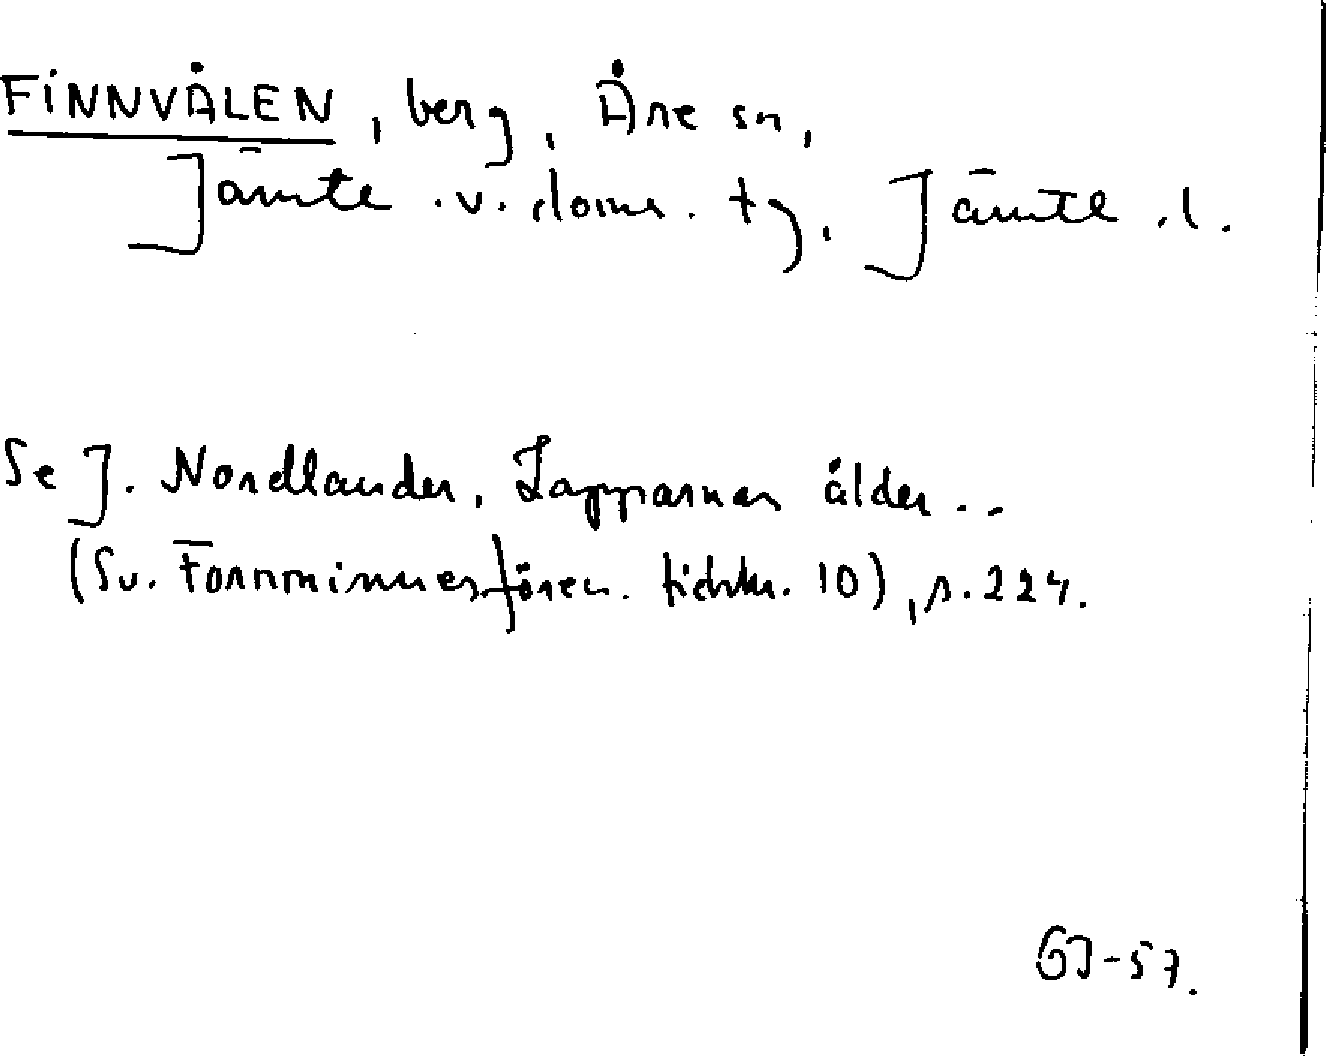 FINNVÅLEN, berg, Åre sn,
Jämtl. v. doms. tg, Jämtl. l.
Se J. Nordlander, Lapparnas ålder..
(Sv. Fornminnesfören. tidskr. 10), s. 224.
GJ-57.